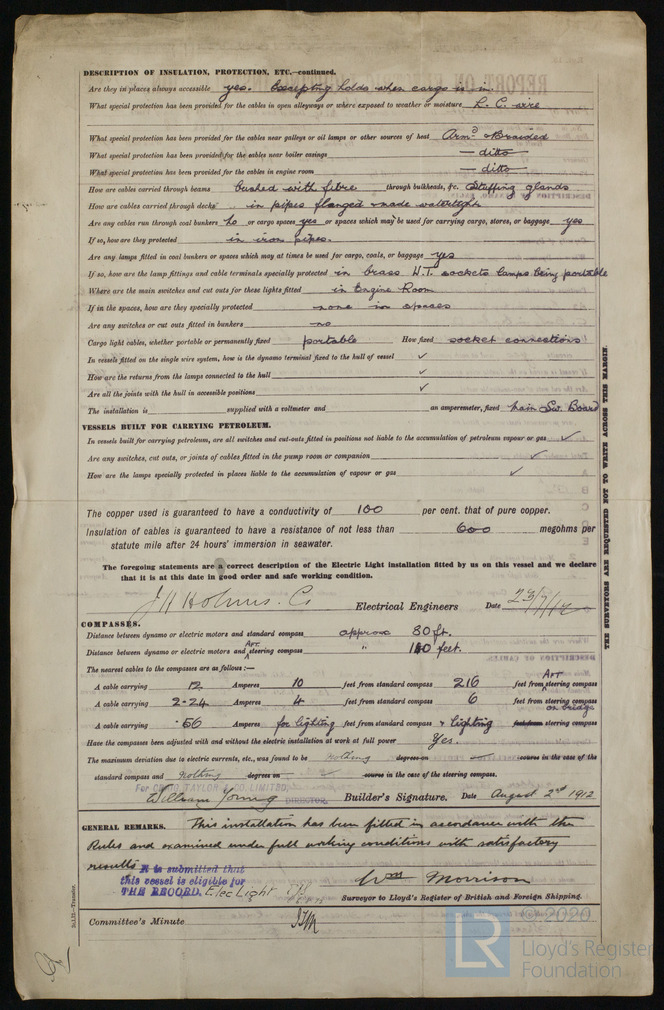 DESCRIPTION OF INSULATION, PROTECTION, ETC.—continued.
Are they in places always accessible yes. Excepting holds when cargo is in.
What special protection has been provided for the cables in open alleyways or where exposed to weather or moisture L. C. wire
What special protection has been provided for the cables near galleys or oil lamps or other sources of heat Armd Braided
What special protection has been provided for the cables near boiler casings — ditto —
What special protection has been provided for the cables in engine room — ditto —
How are cables carried through beams bushed with fibre through bulkheads, &c. Stuffing glands
How are cables carried through decks in pipes flanged & made watertight
Are any cables run through coal bunkers no or cargo spaces yes or spaces which may be used for carrying cargo, stores, or baggage yes
If so, how are they protected in iron pipes.
Are any lamps fitted in coal bunkers or spaces which may at times be used for cargo, coals, or baggage yes
If so, how are the lamp fittings and cable terminals specially protected in brass W.T. sockets lamps being portable
Where are the main switches and cut outs for these lights fitted in Engine Room
If in the spaces, how are they specially protected none in spaces
Are any switches or cut outs fitted in bunkers no
Cargo light cables, whether portable or permanently fixed portable How fixed socket connections
In vessels fitted on the single wire system, how is the dynamo terminal fixed to the hull of vessel ✓
How are the returns from the lamps connected to the hull ✓
Are all the joints with the hull in accessible positions ✓
The installation is supplied with a voltmeter and an amperemeter, fixed Main Sw. Board
VESSELS BUILT FOR CARRYING PETROLEUM.
In vessels built for carrying petroleum, are all switches and cut-outs fitted in positions not liable to the accumulation of petroleum vapour or gas ✓
Are any switches, cut outs, or joints of cables fitted in the pump room or companion ✓
How are the lamps specially protected in places liable to the accumulation of vapour or gas ✓
The copper used is guaranteed to have a conductivity of 100 per cent. that of pure copper.
Insulation of cables is guaranteed to have a resistance of not less than 600 megohms per
statute mile after 24 hours' immersion in seawater.
The foregoing statements are a correct description of the Electric Light installation fitted by us on this vessel and we declare
that it is at this date in good order and safe working condition.
J H Holmes. Co Electrical Engineers Date 23/7/12
COMPASSES.
Distance between dynamo or electric motors and standard compass approx 80 ft.
Aft
Distance between dynamo or electric motors and steering compass " 110 feet.
The nearest cables to the compasses are as follows:—
Aft
A cable carrying 12 Amperes 10 feet from standard compass 216 feet from steering compass
A cable carrying 2·24 Amperes 4 feet from standard compass 6 feet from steering compass
on bridge
A cable carrying ·56 Amperes for lighting feet from standard compass & lighting feet from steering compass
Have the compasses been adjusted with and without the electric installation at work at full power Yes.
The maximum deviation due to electric currents, etc., was found to be nothing degrees on course in the case of the
standard compass and nothing degrees on course in the case of the steering compass.
For CRAIG, TAYLOR & CO. LIMITED,
William Young DIRECTOR. Builder's Signature. Date August 2nd 1912
GENERAL REMARKS. This installation has been fitted in accordance with the
Rules and examined under full working conditions with satisfactory
results
It is submitted that
this vessel is eligible for
THE RECORD. Elec Light
Wm Morrison
Surveyor to Lloyd's Register of British and Foreign Shipping.
Committee's Minute
THE SURVEYORS ARE REQUESTED NOT TO WRITE ACROSS THIS MARGIN.
© 2020
LR
Lloyd's Register
Foundation